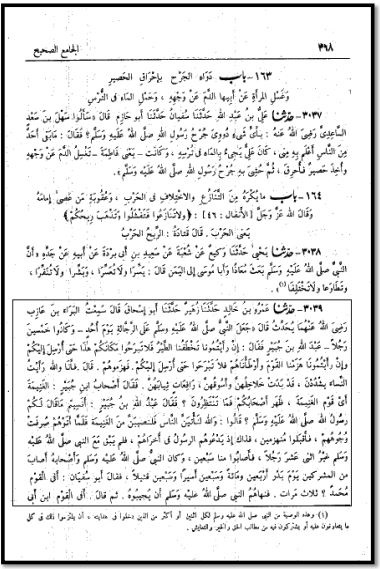 ٣٩٨ الجامع الصحيح
١٦٣- باب دواء الجرح بإحراق الحصير
وغسل المرأة عن أبيها الدم عن وجهه ، وحمل الماء في الترس
٣٠٣٧- حدثنا علي بن عبد الله حدثنا سفيان حدثنا أبو حازم قال «سألوا سهل بن سعد
الساعدي رضي الله عنه : بأي شيء دووي جرح رسول الله صلى الله عليه وسلم؟ فقال : ما بقي أحد
من الناس أعلم به مني ، كان علي يجيء بالماء في ترسه ، وكانت - يعني فاطمة - تغسل الدم عن وجهه
وأخذ حصير فأحرق ، ثم حشي به جرح رسول الله صلى الله عليه وسلم» .
١٦٤- باب ما يكره من التنازع والاختلاف في الحرب ، وعقوبة من عصى إمامه
وقال الله عز وجل [ الأنفال : ٤٦ ] : ﴿ولا تنازعوا فتفشلوا وتذهب ريحكم﴾
يعني الحرب . قال قتادة : الريح الحرب
٣٠٣٨- حدثنا يحيى حدثنا وكيع عن شعبة عن سعيد بن أبي بردة عن أبيه عن جده «أن
النبي صلى الله عليه وسلم بعث معاذا وأبا موسى إلى اليمن قال : يسرا ولا تعسرا ، وبشرا ولا تنفرا ،
وتطاوعا ولا تختلفا»(١) .
٣٠٣٩- حدثنا عمرو بن خالد حدثنا زهير حدثنا أبو إسحاق قال سمعت البراء بن عازب
رضي الله عنهما يحدث قال «جعل النبي صلى الله عليه وسلم على الرجالة يوم أحد - وكانوا خمسين
رجلا - عبد الله بن جبير فقال : إن رأيتمونا تخطفنا الطير فلا تبرحوا مكانكم هذا حتى أرسل إليكم
وإن رأيتمونا هزمنا القوم وأوطأناهم فلا تبرحوا حتى أرسل إليكم. فهزموهم . قال فأنا والله رأيت
النساء يشددن ، قد بدت خلاخلهن وأسوقهن ، رافعات ثيابهن . فقال أصحاب ابن جبير : الغنيمة
أي قوم الغنيمة ، ظهر أصحابكم فما تنتظرون ؟ فقال عبد الله بن جبير : أنسيتم ما قال لكم
رسول الله صلى الله عليه وسلم ؟ قالوا : والله لنأتين الناس فلنصيبن من الغنيمة فلما أتوهم صرفت
وجوههم ، فأقبلوا منهزمين ، فذاك إذ يدعوهم الرسول في أخراهم ، فلم يبق مع النبي صلى الله عليه
وسلم غير اثني عشر رجلا ، فأصابوا منا سبعين ، وكان النبي صلى الله عليه وسلم وأصحابه أصاب
من المشركين يوم بدر أربعين ومائة وسبعين أسيرا وسبعين قتيلا ، فقال أبو سفيان : أفي القوم
محمد ؟ ثلاث مرات . فنهاهم النبي صلى الله عليه وسلم أن يجيبوه . ثم قال . أفي القوم ابن أبي
(١) وهذه الوصية من النبي صلى الله عليه وسلم لكل اثنين أو أكثر من الذين دخلوا في هدايته ، أن يلتزموا ذلك في كل
ما يتعاونون عليه أو يشتركون فيه من مطالب الحق والخير